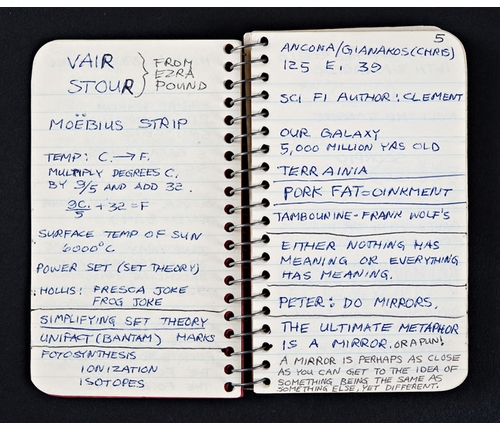 VAIR
STOUR
FROM
EZRA
POUND
MOËBIUS STRIP
TEMP: C. → F.
MULTIPLY DEGREES C.
BY 9/5 AND ADD 32.
9C/5 + 32 = F
SURFACE TEMP OF SUN
6000°C
POWER SET (SET THEORY)
HOLLIS: FRESCA JOKE
FROG JOKE
SIMPLIFYING SET THEORY
UNIFACT (BANTAM) MARKS
FOTOSYNTHESIS
IONIZATION
ISOTOPES
5
ANCONA/GIANAKOS (CHRIS)
125 E. 39
SCI FI AUTHOR: CLEMENT
OUR GALAXY
5,000 MILLION YRS OLD
TERRAINIA
PORK FAT=OINKMENT
TAMBOURINE-FRANK WOLF'S
EITHER NOTHING HAS
MEANING OR EVERYTHING
HAS MEANING.
PETER: DO MIRRORS.
THE ULTIMATE METAPHOR
IS A MIRROR. OR A PUN!
A MIRROR IS PERHAPS AS CLOSE
AS YOU CAN GET TO THE IDEA OF
SOMETHING BEING THE SAME AS
SOMETHING ELSE, YET DIFFERENT.